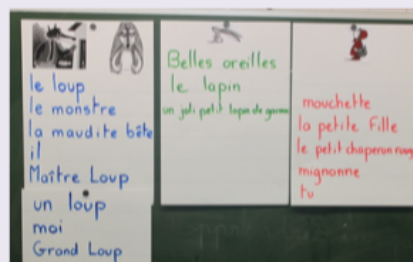 le loup
le monstre
la maudite bête
il
Maître Loup
un loup
moi
Grand Loup
Belles oreilles
le lapin
un joli petit lapin de
mouchette
la petite fille
le petit chaperon rouge
mignonne
tu